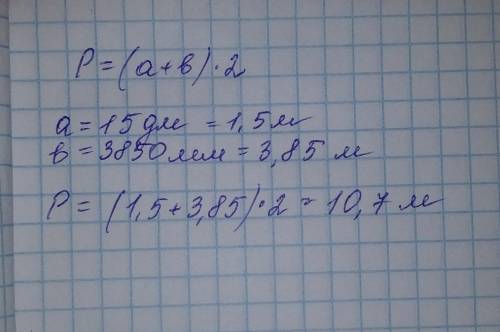 P = (а+в)·2
а = 15дм = 1,5м
в = 3850мм = 3,85 м
P = (1,5+3,85)·2 = 10,7 м